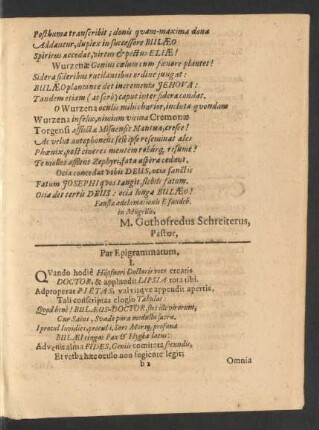 Posthuma transcribit; donis quam maxima dona
Addantur, duplex in successore BULÆO
Spiritus accedat, virtus & pectus ELIÆ!
Wurzenæ Genius cælum cum fœnore plantet!
Sidera sideribus rutilantibus ordine jungat:
BULÆO plantante det incrementa JEHOVA!
Tandem etiam (at serò) caput inter sidera condat.
O Wurzena oculis mihi charior, incluta quondam
Wurzena infelix, nimium vicina Cremonæ
Torgensi afflicta Misnensis Mantua, cresce!
Ac velut autophonets sese ipse reseminat ales
Phœnix, post cineres mentem robúrq, resume!
Te molles afflent Zephyri, fata aspera cedant,
Otia concedat urbis DEUS, otia sanctis
Fatum JOSEPHI quos tangit flebile fatum.
Otia det terris DEUS: otia longa BULÆO!
Fausta acclamationis E fundeb.
in Mügeln,
M. Gothofredus Schreiterus,
Pastor,
Par Epigrammatum,
I.
QVando hodiè Höpfneri Doctoris voce creatis
DOCTOR, & applaudit LIPSIA tota tibi.
Adproperat PIETAS, valvisque appendit apertis,
Tali conscriptas elogio Tabulas:
Quod bene! BULÆUS-DOCTOR, fert ille virorum,
Cur Saios, Svade pira medulla sacra.
I procul invidiæ, procul i, sors Momi, profana
BULÆI cingat Pax & Hygêa latus:
Adveniat alma FIDES, Geniis comitata secundis,
Et verba hæc oculo non fugiente legit;
D 2
Omnia